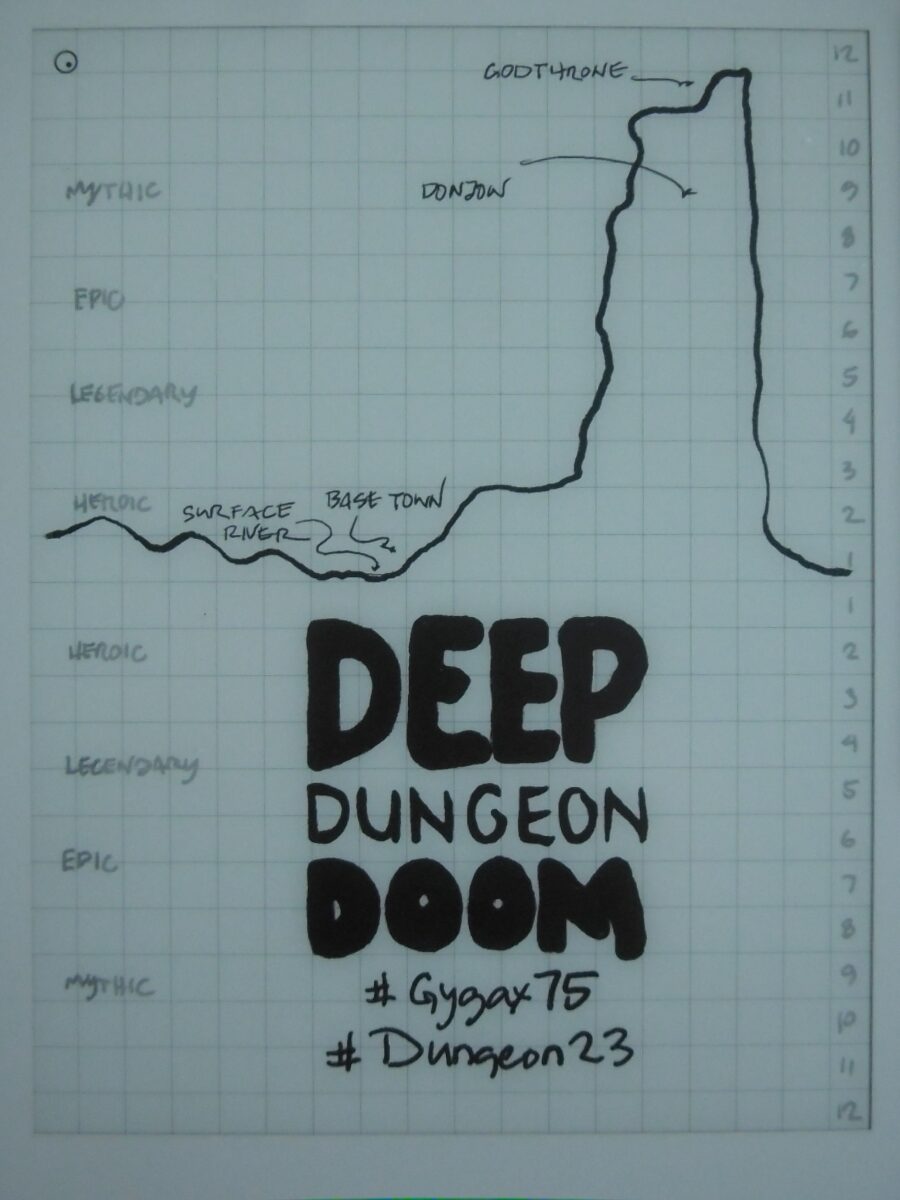 12
GODTHRONE
11
10
MYTHIC
DONJON
9
8
7
EPIC
6
5
LEGENDARY
4
3
HEROIC
SURFACE
RIVER
BASE TOWN
2
1
1
HEROIC
2
3
DEEP
4
LEGENDARY
5
DUNGEON
6
EPIC
7
DOOM
8
MYTHIC
9
# Gygax75
10
# Dungeon23
11
12